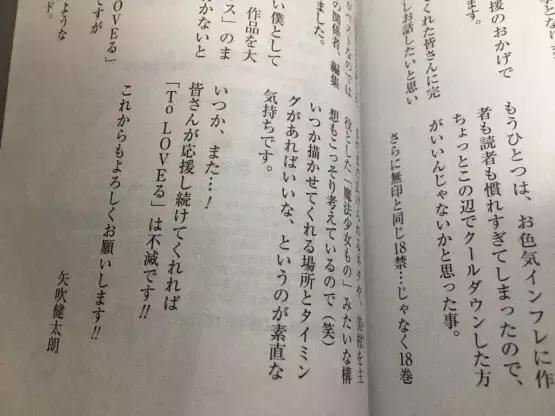 援のおかげで
くれた皆さんに完
しお話したいと思い
ます。
もうひとつは、お色気インフレに作
者も読者も慣れすぎてしまったので、
ちょっとこの辺でクールダウンした方
がいいんじゃないかと思った事。
さらに無印と同じ18禁…じゃなく18巻
の関係者、編集
ました。
い僕として
作品を大
ス」のま
かないと
LOVEる」
ですが
ような
ド。
役とした「魔法少女もの」みたいな構
想もこっそり考えているので（笑）
いつか描かせてくれる場所とタイミン
グがあればいいな、というのが素直な
気持ちです。
いつか、また…！
皆さんが応援し続けてくれれば
「To LOVEる」は不滅です!!
これからもよろしくお願いします!!
矢吹健太朗